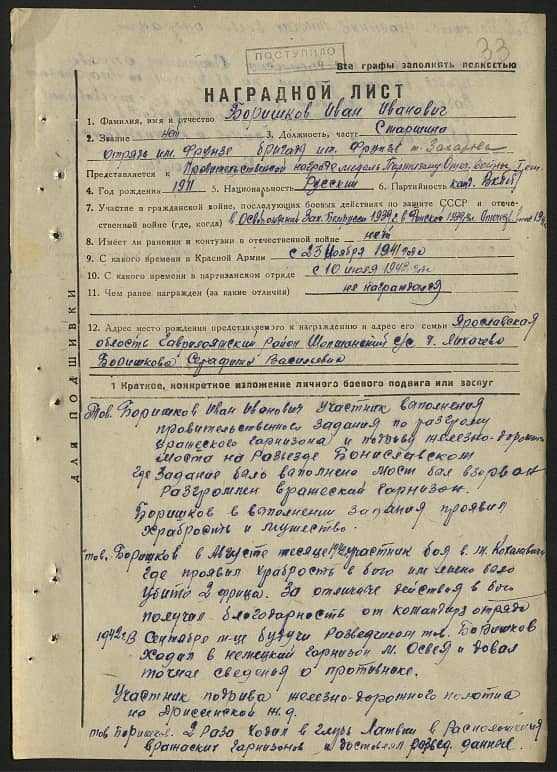 ПОСТУПИЛО
33
Все графы заполнять полностью
НАГРАДНОЙ ЛИСТ
1. Фамилия, имя и отчество Боришков Иван Иванович
2. Звание нет 3. Должность, часть Старшина
отряд им. Фрунзе бригада им. Фрунзе т. Захарова
Представляется к Правительственной награде медаль Партизану Отеч. войны I ст.
4. Год рождения 1911 5. Национальность Русский 6. Партийность канд. ВКП(б)
7. Участие в гражданской войне, последующих боевых действиях по защите СССР и отече-
ственной войне (где, когда) в Освобождении Зап. Белорусси 1939 г. в Финской 1939 Отечеств
8. Имеет ли ранения и контузии в отечественной войне нет
9. С какого времени в Красной Армии с 23 Ноября 1941 года
10. С какого времени в партизанском отряде с 10 июля 1942
11. Чем ранее награжден (за какие отличия) не награждался
12. Адрес место рождения представляемого к награждению и адрес его семьи Ярославская
область Гаврилоямский район Шопшанский с/с д. Лихачево
Боришкова Серафима Васильевна
ДЛЯ ПОДШИВКИ
1 Краткое, конкретное изложение личного боевого подвига или заслуг
Тов. Боришков Иван Иванович участник выполнения
правительственного задания по разгрому
вражеского гарнизона и подрыву железно-дорожн
моста на Разъезде Бониславском
где задание было ваполнено мост был взорван
Разгромлен вражеский гарнизон.
Боришков в ваполнении задания проявил
храбрость и мужество.
тов. Боришков в Августе месяце 1942 участник боя в м.
где проявил храбрость в бою им лично было
убито 2 фрица. За отличаие действоя в бою
получил благодарность от командира отряда
1942 г. В Сентябре м-це будучи Разведчиком тов. Боришков
ходил в немецкий гарнизон м. Освея и довал
точные сведения о противнике.
Участник подрыва железно-дорожного полотна
на Дриссенской ж.д.
тов Боришков 2 Раза ходил в глубь Латвии в Расположения
вражаских гарнизонов и доставлял развед. данные.